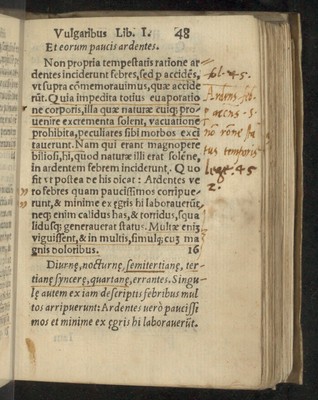 Vulgaribus Lib. I. 48
Et eorum paucis ardentes.
Non propria tempestatis ratione ar
dentes inciderunt febres, sed ꝑ accidẽs,
vt supra cõmemorauimus, quæ accide
rũt. Quia impedita totius euaporatio
ne corporis, illa quæ naturæ cuiqꝫ pro
uenire excrementa solent, vacuatione
prohibita, peculiares sibi morbos exci
tauerunt. Nam qui erant magnopere
biliosi, hi, quod naturæ illi erat solẽne,
in ardentem febrem inciderunt. Quo
fit vt postea de his dicat: Ardentes ve
ro febres quam paucissimos corripue-
runt, & minime ex ęgris hi laborauerũt,
neqꝫ enim calidus has, & torridus, squa
lidusqꝫ generauerat status. Multæ enim
viguissent, & in multis, simulqꝫ cuꝫ ma
gnis doloribus. 16
Diurnę, nocturnę, semitertianę, ter-
tianę syncerę, quartanę, errantes. Singu-
lę autem ex iam descriptis febribus mul
tos arripuerunt: Ardentes uerò paucissi
mos et minime ex ęgris hi laborauerũt.
fol. 45.
Ardens feb
accns. s.
nõ rõne sta
tus temporis
lege. 45
2.